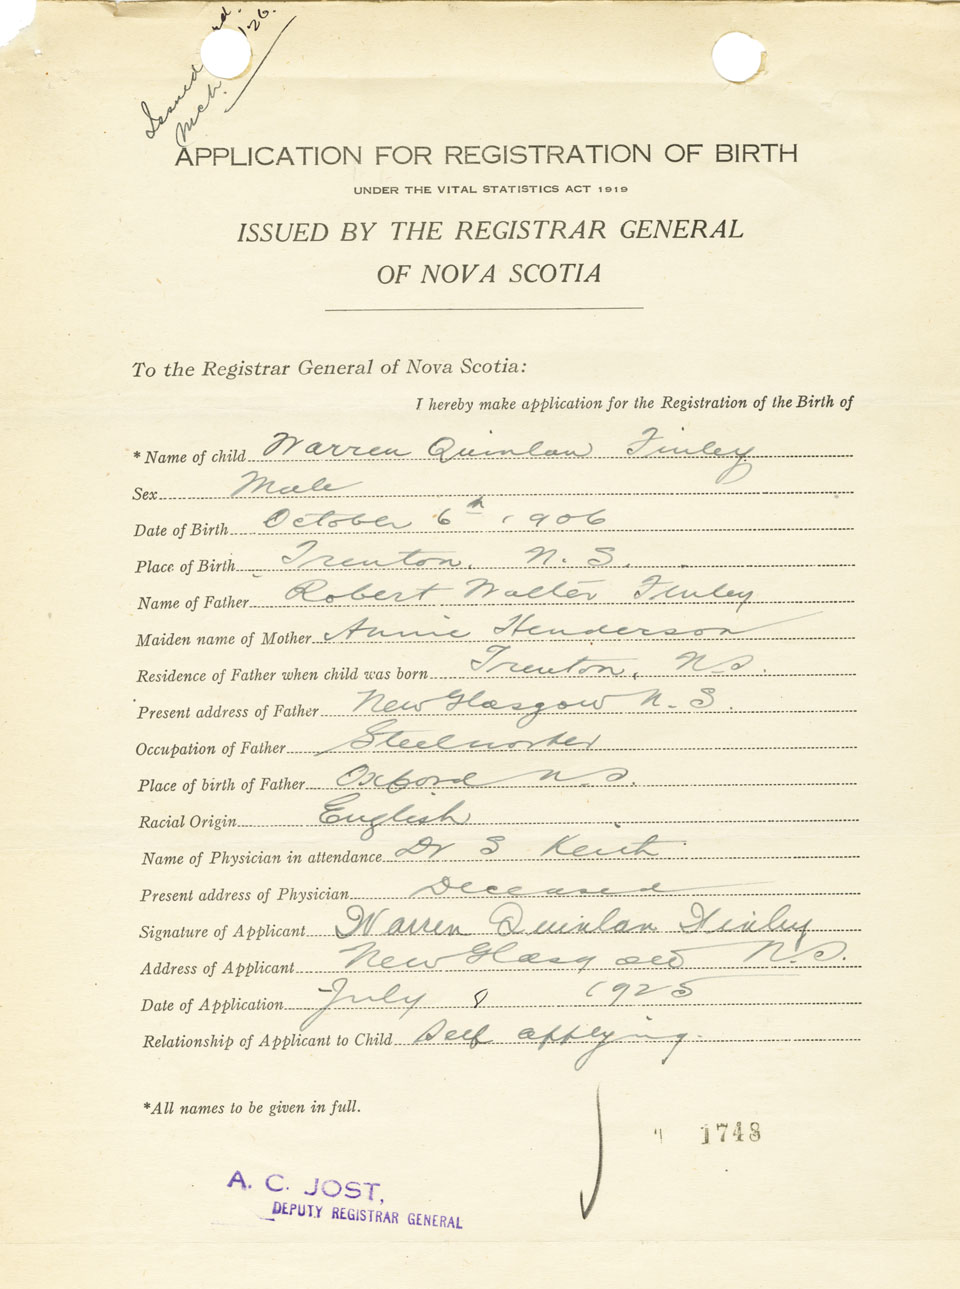 Issued
Mch. rd. 1·26.
APPLICATION FOR REGISTRATION OF BIRTH
UNDER THE VITAL STATISTICS ACT 1919
ISSUED BY THE REGISTRAR GENERAL
OF NOVA SCOTIA
To the Registrar General of Nova Scotia:
I hereby make application for the Registration of the Birth of
* Name of child Warren Quinlan Finley
Sex Male
Date of Birth October 6th 1906
Place of Birth Trenton, N. S.
Name of Father Robert Walter Finley
Maiden name of Mother Annie Henderson
Residence of Father when child was born Trenton, N.S.
Present address of Father New Glasgow N. S.
Occupation of Father Steelworker
Place of birth of Father Oxford N S.
Racial Origin English
Name of Physician in attendance Dr S Keith
Present address of Physician Deceased
Signature of Applicant Warren Quinlan Finley
Address of Applicant New Glasgow N.S.
Date of Application July 8 1925
Relationship of Applicant to Child Self applying.
*All names to be given in full.
1748
A. C. JOST,
DEPUTY REGISTRAR GENERAL